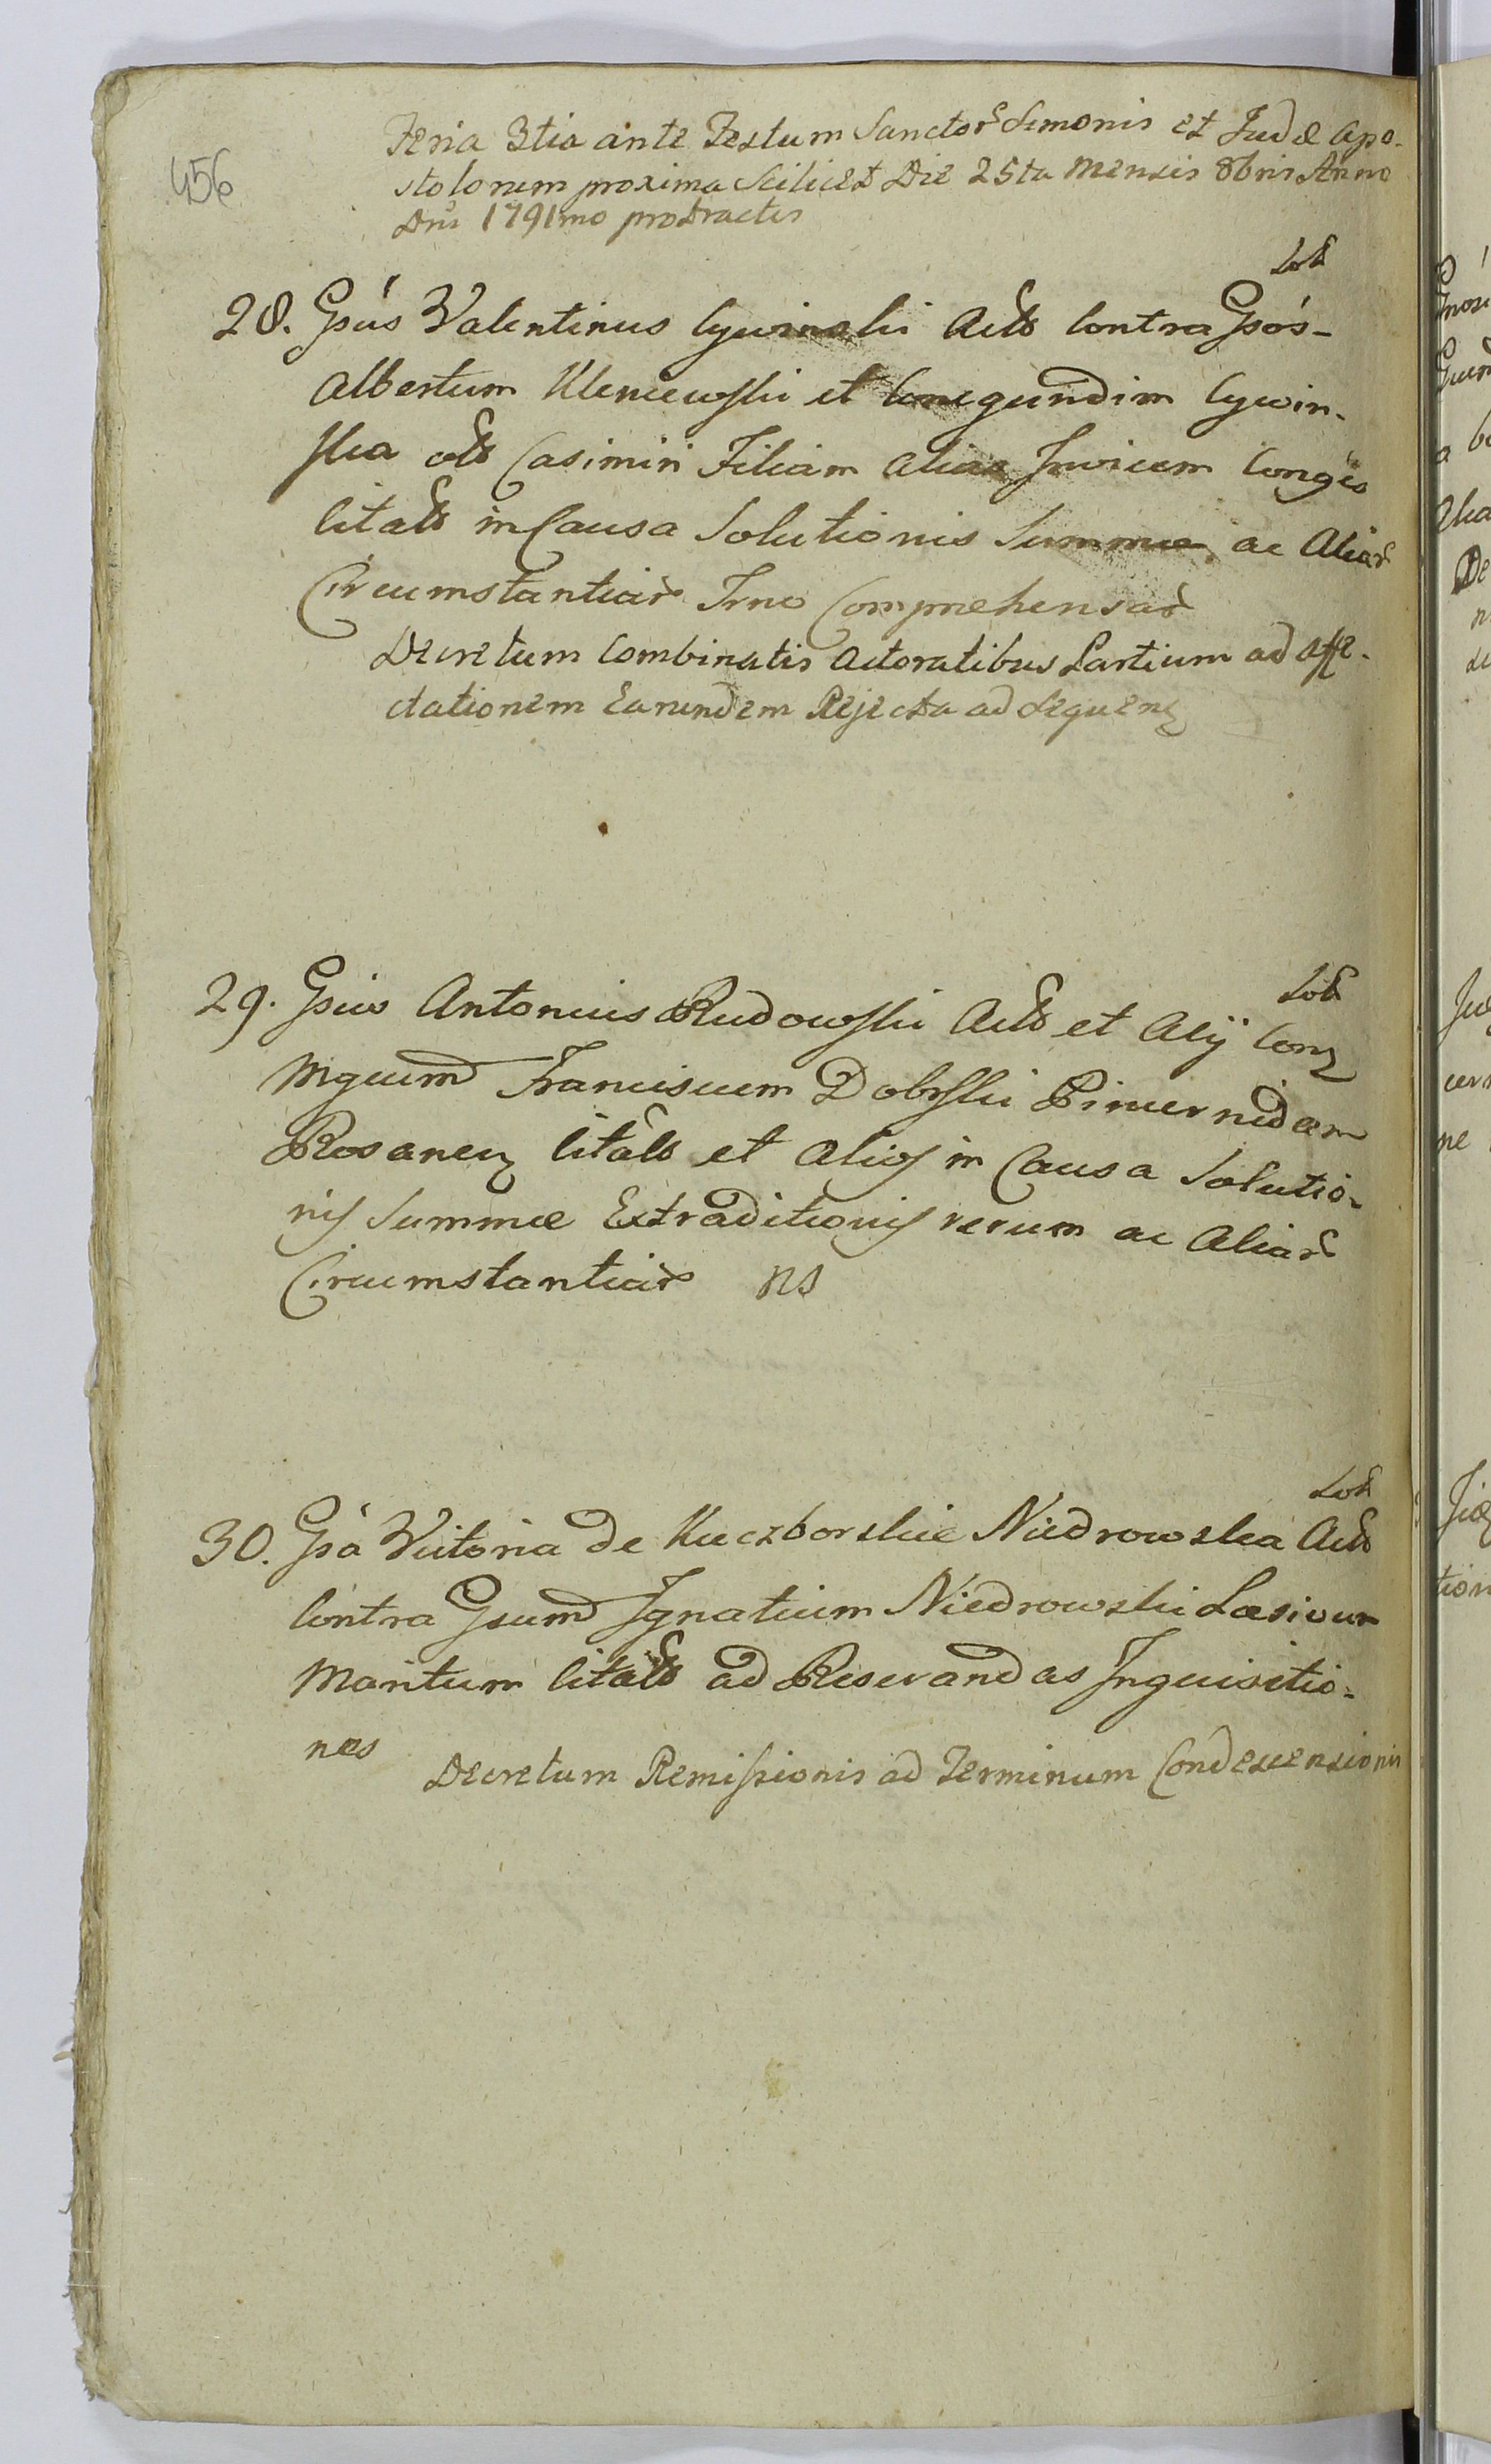 456
Feria 3tia ante Festum Sanctor Simonis et Judæ Apo-
stolorum proxima Scilicet Die 25ta Mensis 8bris Anno
Dni 1791mo protractis
28. Gsus Valentinus Cywinski Act Contra Gsos-
Albertum Kleniewski et Cunegundim Cywin-
ska olt Casimiri Filiam alias Invicem Conges
Citatt in Causa Solutionis Summæ ac Aliar
Circumstantiar Trno Comprehensar
Decretum Combinatis Actoratibus Partium ad affe-
ctationem Earundem Rejecta ad Sequenz
29. Gsius Antonius Rudowski Act et Alij Conz
Mgcum Franciscum Dobrski Pincernidam
Rosanenz Citatt et Alios in Causa Solutio-
nis Summæ Extraditionis rerum ac Aliar
Circumstantiar ns
30. Gsa Victoria de Kuczborskie Niedrowska Act
Contra Gsum Ignatium Niedrowski Læsivum
Maritum Citatt ad Reserandas Inquisitio-
nes
Decretum Remissionis ad Terminum Condescensionis